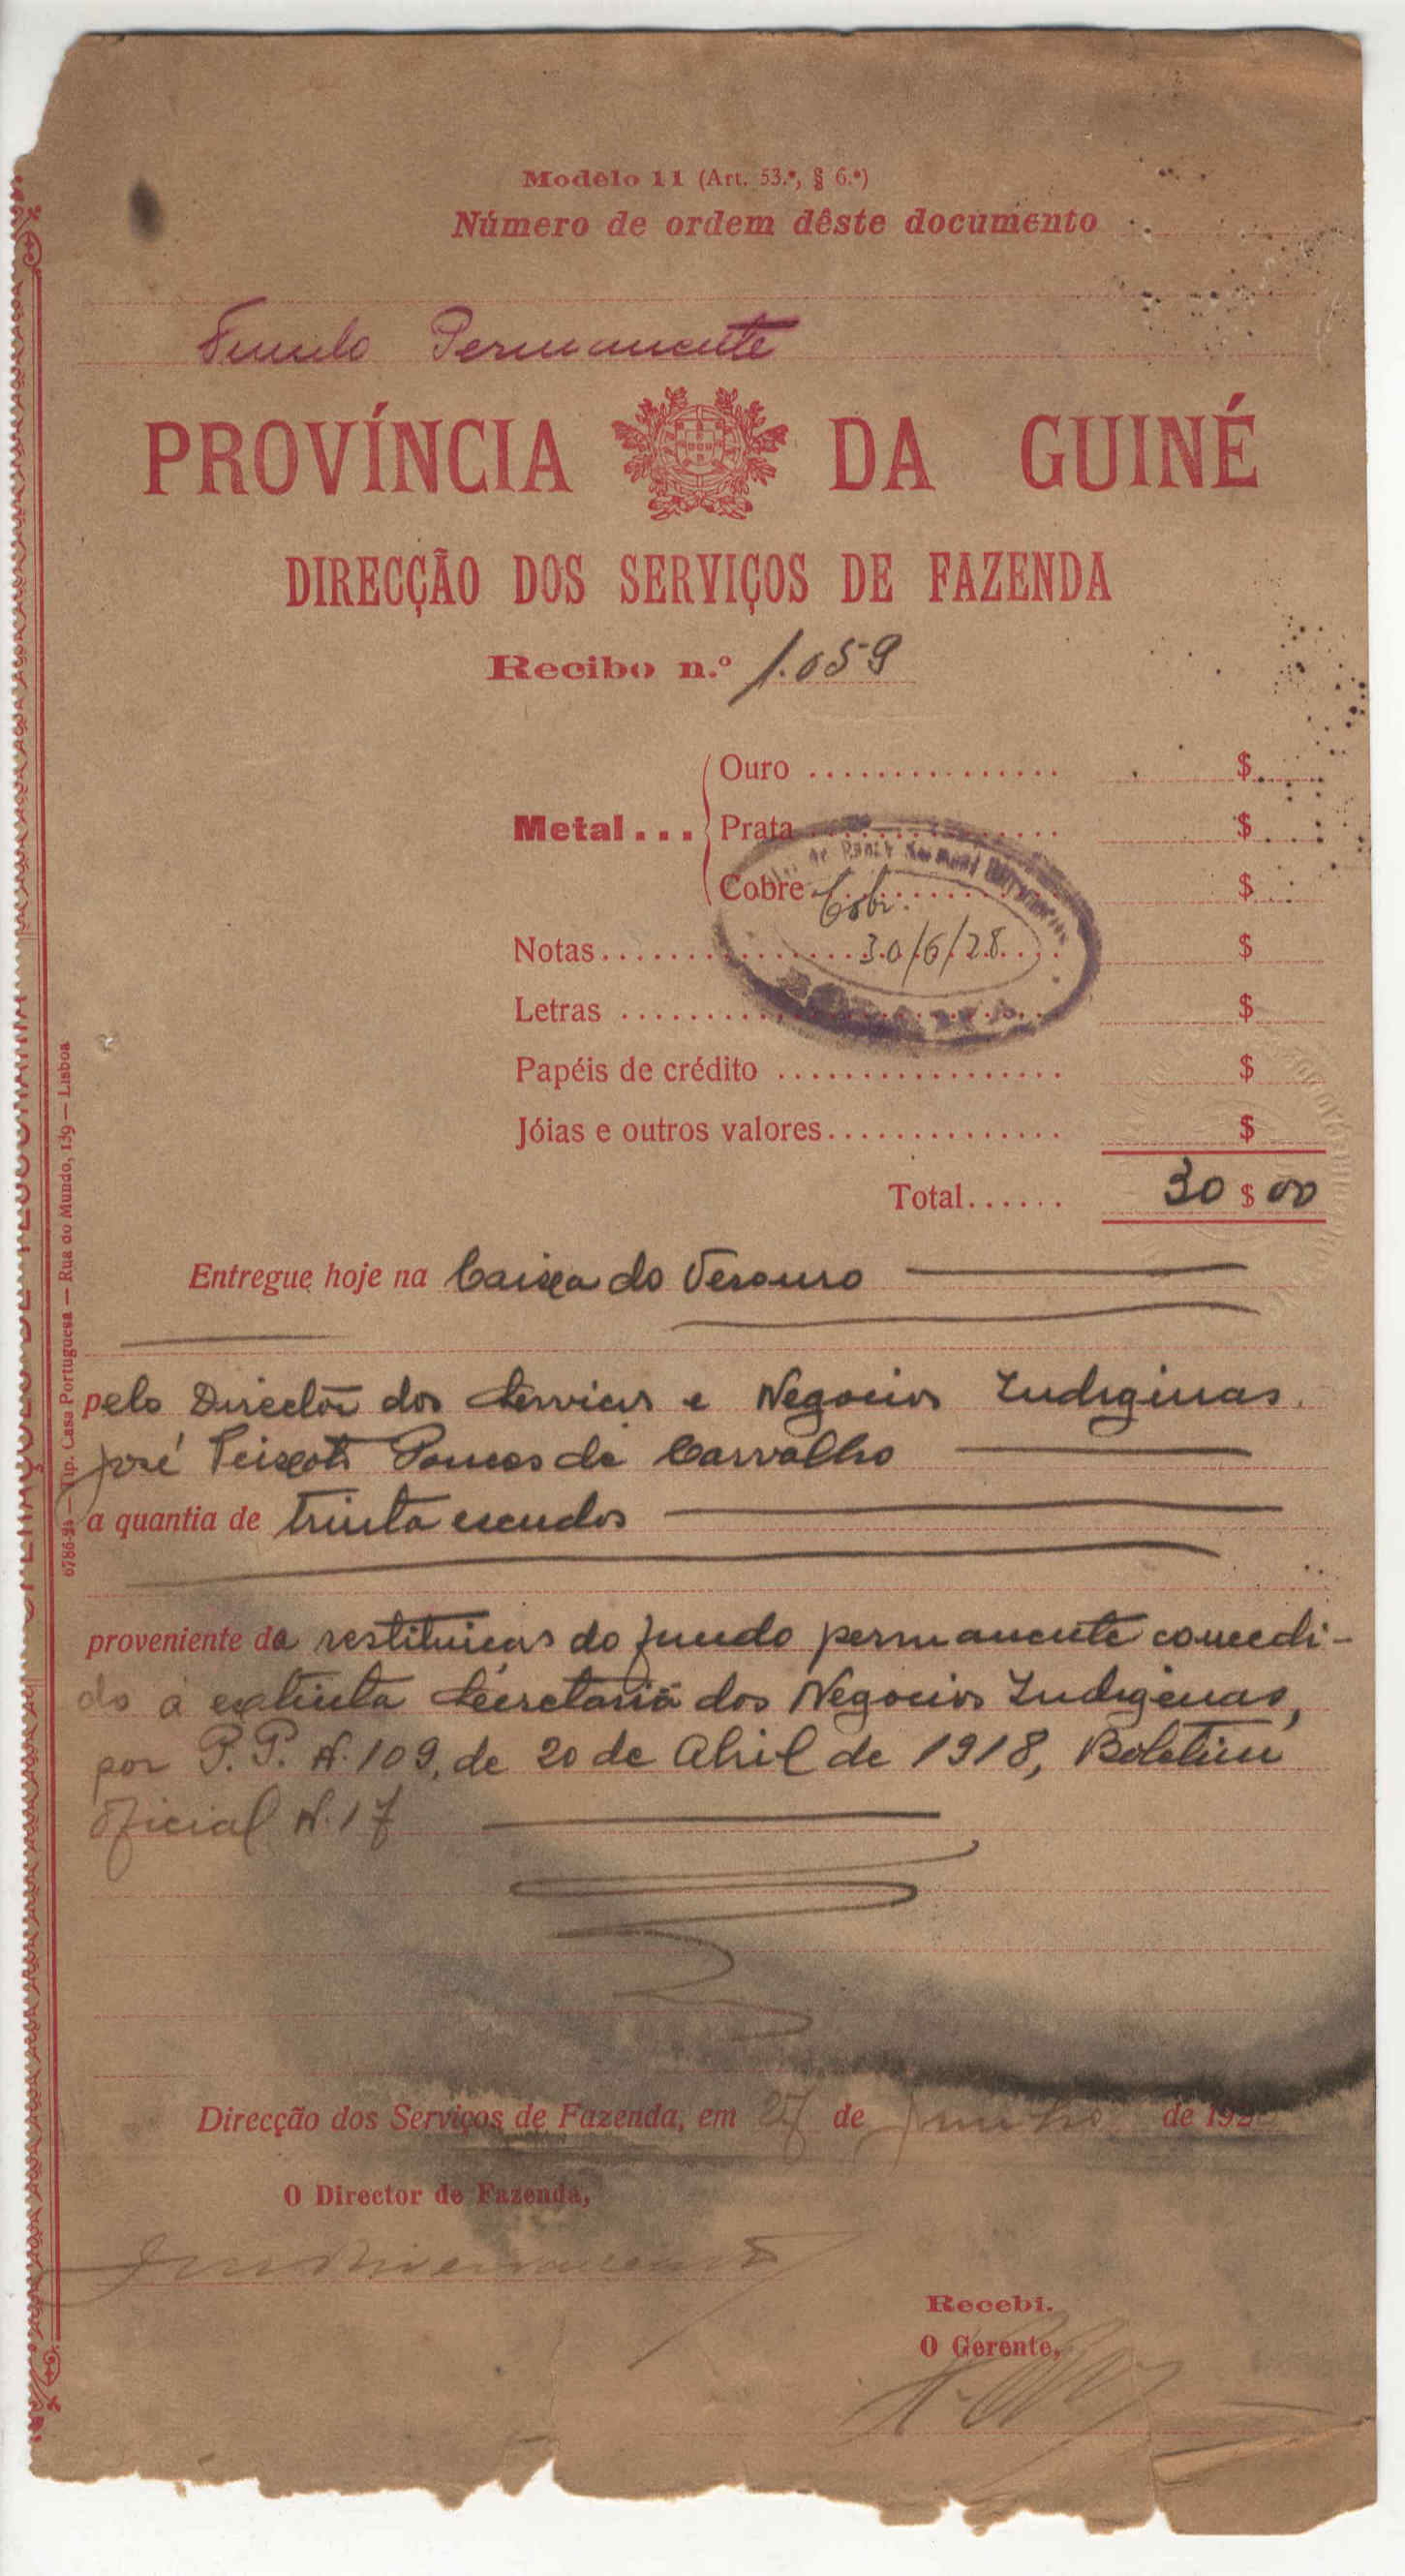 Modêlo 11 (Art. 53.º, § 6.º)
Número de ordem dêste documento
Fundo Permanente
PROVÍNCIA DA GUINÉ
DIRECÇÃO DOS SERVIÇOS DE FAZENDA
Recibo n.º 1.059
Metal... Ouro ............... $
Prata ............... $
Cobre ............... $
Cobr.
30/6/28
Notas ............... $
Letras ............... $
Papéis de crédito ............... $
Jóias e outros valores ............... $
Total...... 30 $ 00
Entregue hoje na Caixa do Tesouro
pelo Director dos Serviços e Negocios Indiginas.
José Peixoto de Carvalho
a quantia de trinta escudos
proveniente da restituição do fundo permanente concedi-
do á extinta Secretaria dos Negocios Indigenas,
por P. P. N. 109, de 20 de Abril de 1918, Boletim
Oficial N. 17
Direcção dos Serviços de Fazenda, em 27 de Junho de 192
O Director de Fazenda,
Recebi.
O Gerente,
Tip. Casa Portuguesa — Rua do Mundo, 139 — Lisboa